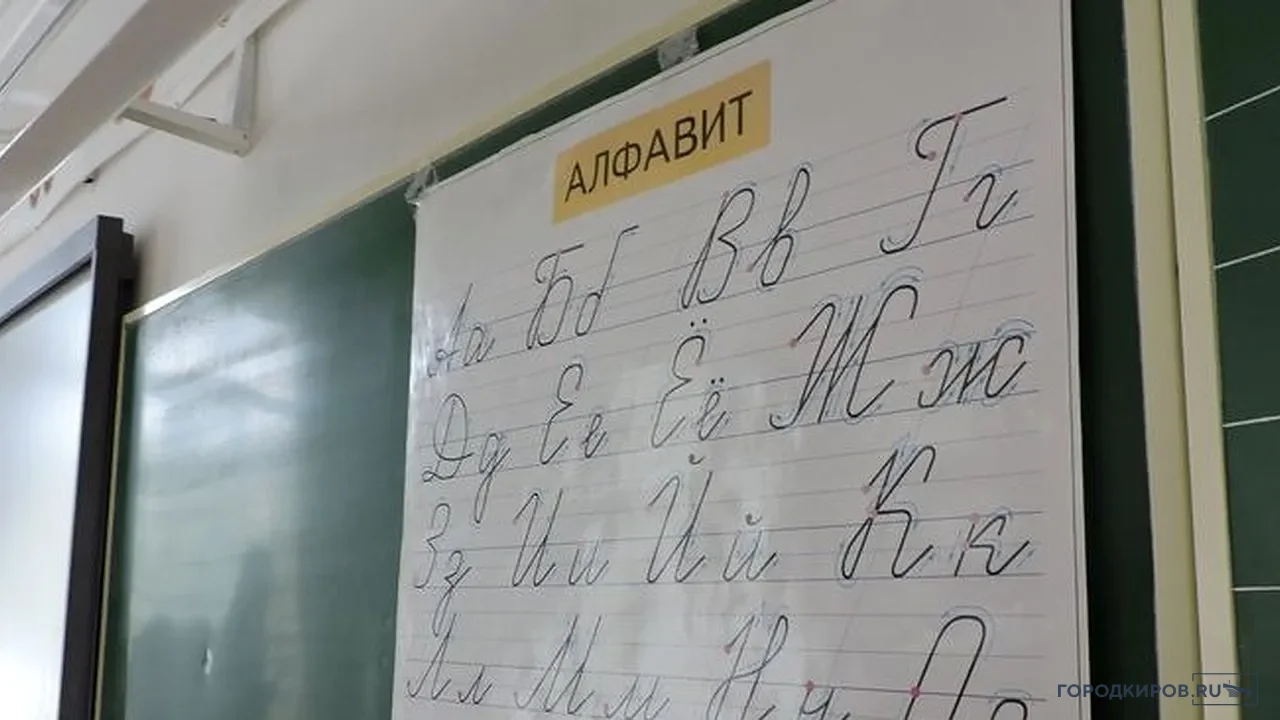 АЛФАВИТ
Аа Бб Вв Гг
Дд Ее Ёё Жж
Зз Ии Йй Кк
Лл Мм Нн Оо
ГОРОДКИРОВ.RU